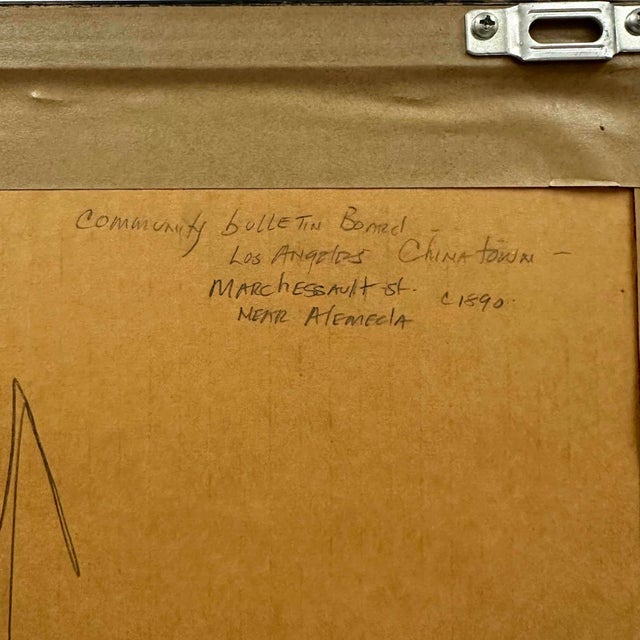 Community bulletin Board -
Los Angeles Chinatown -
Marchessault st. c1890.
near Alemeda